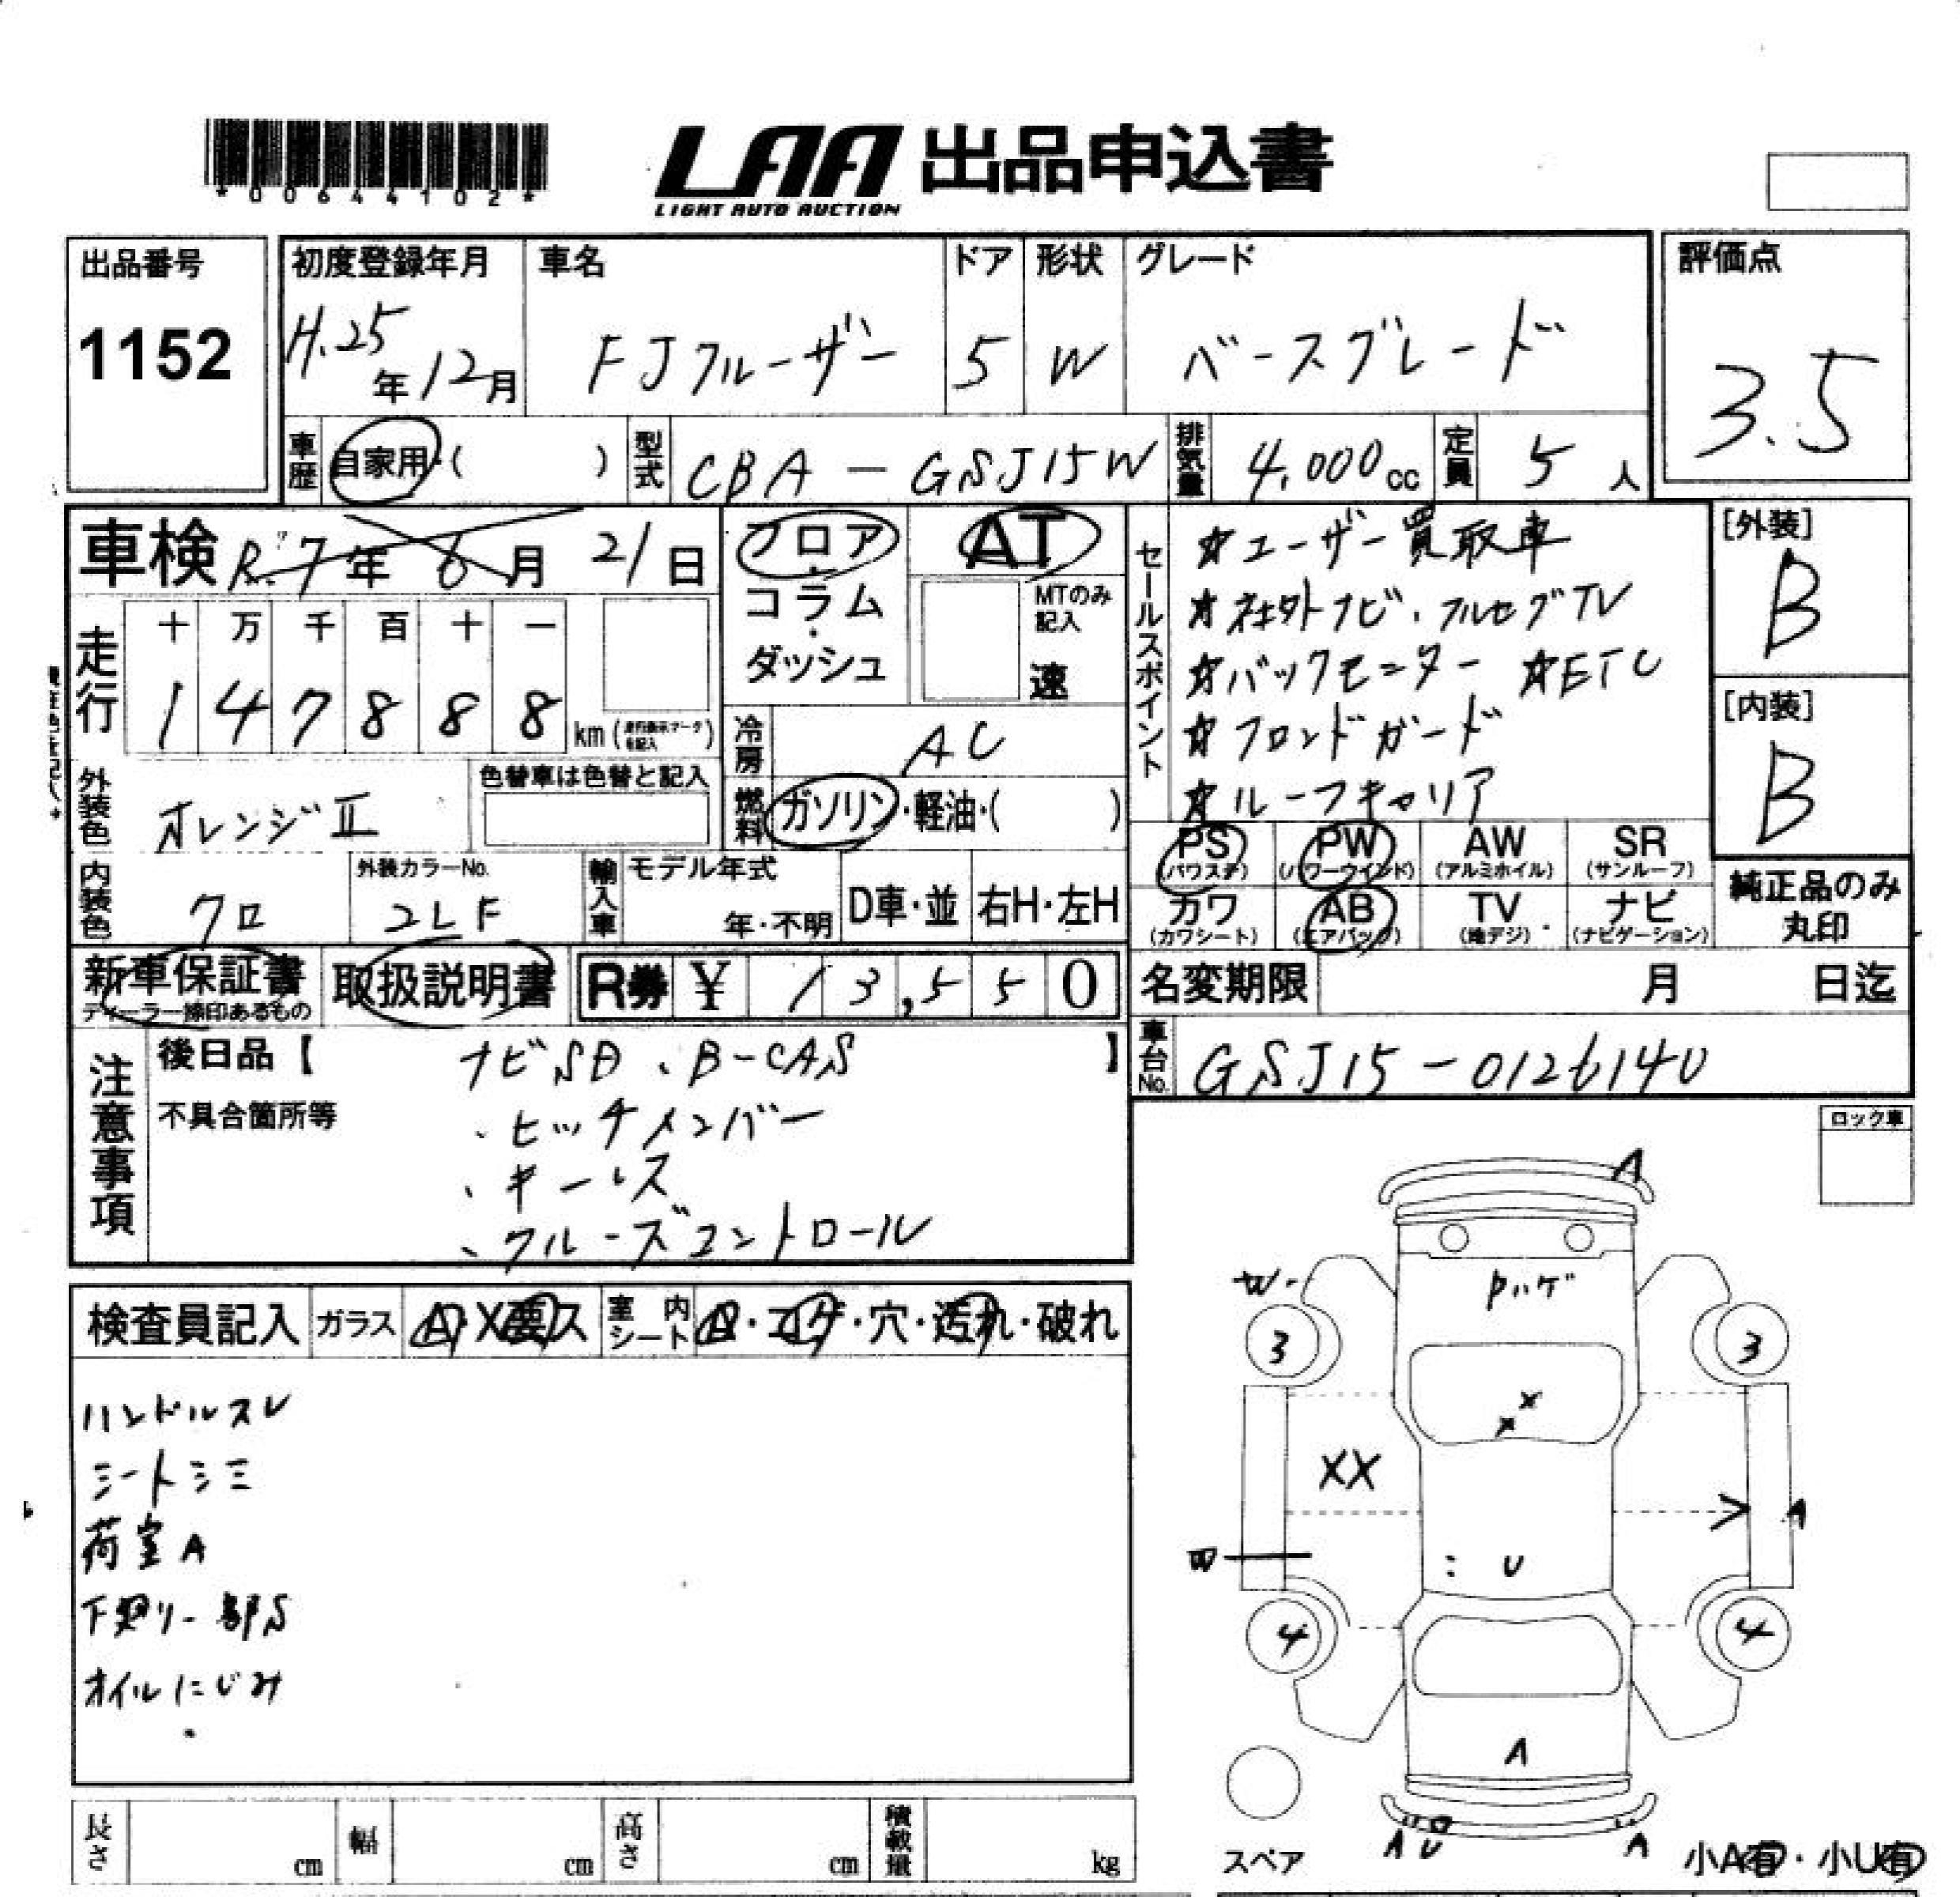 *00644102*
LAA 出品申込書
LIGHT AUTO AUCTION
出品番号
1152
初度登録年月
H.25年12月
車名
FJクルーザー
ドア
5
形状
W
グレード
ベースグレード
評価点
3.5
車歴 自家用・( )
型式 CBA-GSJ15W
排気量 4,000cc
定員 5人
車検 R.7年6月21日
走行
十 万 千 百 十 一
1 4 7 8 8 8 km
フロア・コラム・ダッシュ
AT
MTのみ記入
速
冷房 AC
燃料 ガソリン・軽油・( )
外装色 オレンジⅡ
色替車は色替と記入
内装色 クロ
外装カラーNo. 2LF
輸入車
モデル年式
年・不明
D車・並
右H・左H
セールスポイント
☆ユーザー買取車
☆社外ナビ・フルセグTV
☆バックモニター ☆ETC
☆フロンドガード
☆ルーフキャリア
[外装]
B
[内装]
B
PS (パワステ)
PW (パワーウインド)
AW (アルミホイル)
SR (サンルーフ)
カワ (カワシート)
AB (エアバッグ)
TV (地デジ)
ナビ (ナビゲーション)
純正品のみ丸印
新車保証書
ディーラー捺印あるもの
取扱説明書
R券 ¥ 13,550
名変期限 月 日迄
車台No. GSJ15-0126140
注意事項
後日品【 ナビSD、B-CAS 】
不具合箇所等
、ヒッチメンバー
、キーレス
、クルーズコントロール
ロック車
検査員記入
ガラス A・X要ス
室内シート コゲ・穴・汚れ・破れ
ハンドルスレ
シートシミ
荷室A
下廻り一部S
オイルにじみ
A
W
Pハゲ
3
3
X
X
XX
A
U
4
4
A
A U
A
スペア
小A有・小U有
長さ cm
幅 cm
高さ cm
積載量 kg